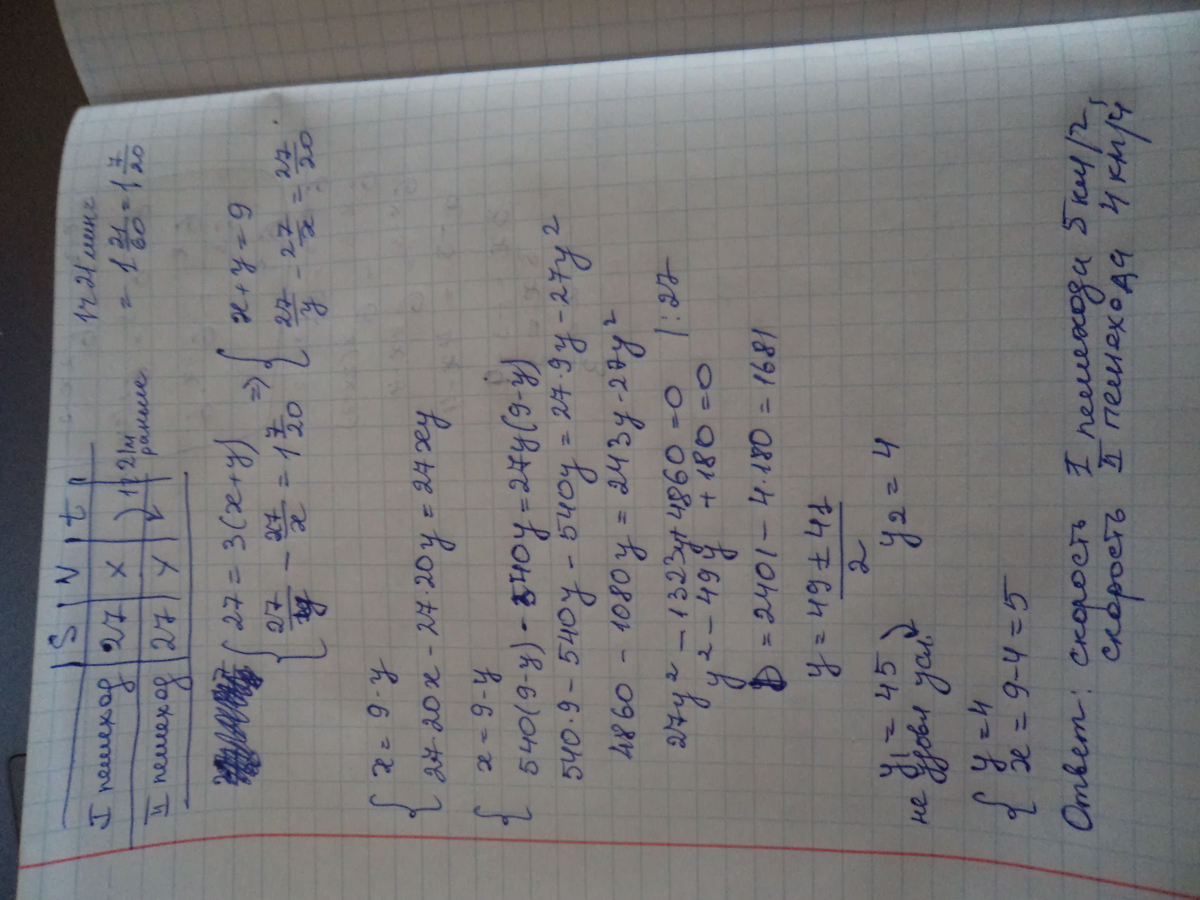 S V t
I пешеход 27 x 1ч 21 мин
II пешеход 27 y раньше = 1 21/60 = 1 7/20
{ 27 = 3(x+y) => { x + y = 9
27/y - 27/x = 1 7/20 27/y - 27/x = 27/20
{ x = 9 - y
27·20x - 27·20y = 27xy
{ x = 9 - y
540(9-y) - 540y = 27y(9-y)
540·9 - 540y - 540y = 27·9y - 27y²
4860 - 1080y = 243y - 27y²
27y² - 1323y + 4860 = 0 |:27
y² - 49y + 180 = 0
D = 2401 - 4·180 = 1681
y = (49 ± 41)/2
y₁ = 45 y₂ = 4
не удовл усл
{ y = 4
x = 9 - 4 = 5
Ответ: скорость I пешехода 5 км/ч,
скорость II пешехода 4 км/ч